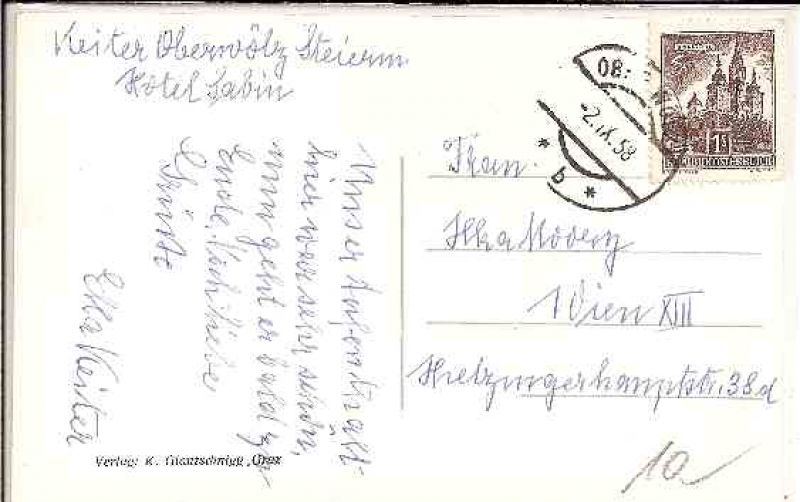 Keiter Oberwölz Steierm.
Hotel Sabin
Unser Aufenthalt
hier war sehr schön,
nun geht er bald zu
Ende. Viele liebe
Grüße
Ella Keiter
Verlag: K. Glantschnigg, Graz
08:
-2.IX.58
* b *
1S
REPUBLIK ÖSTERREICH
Frau
Ilka
Wien XIII
Hietzingerhauptstr. 38d
10